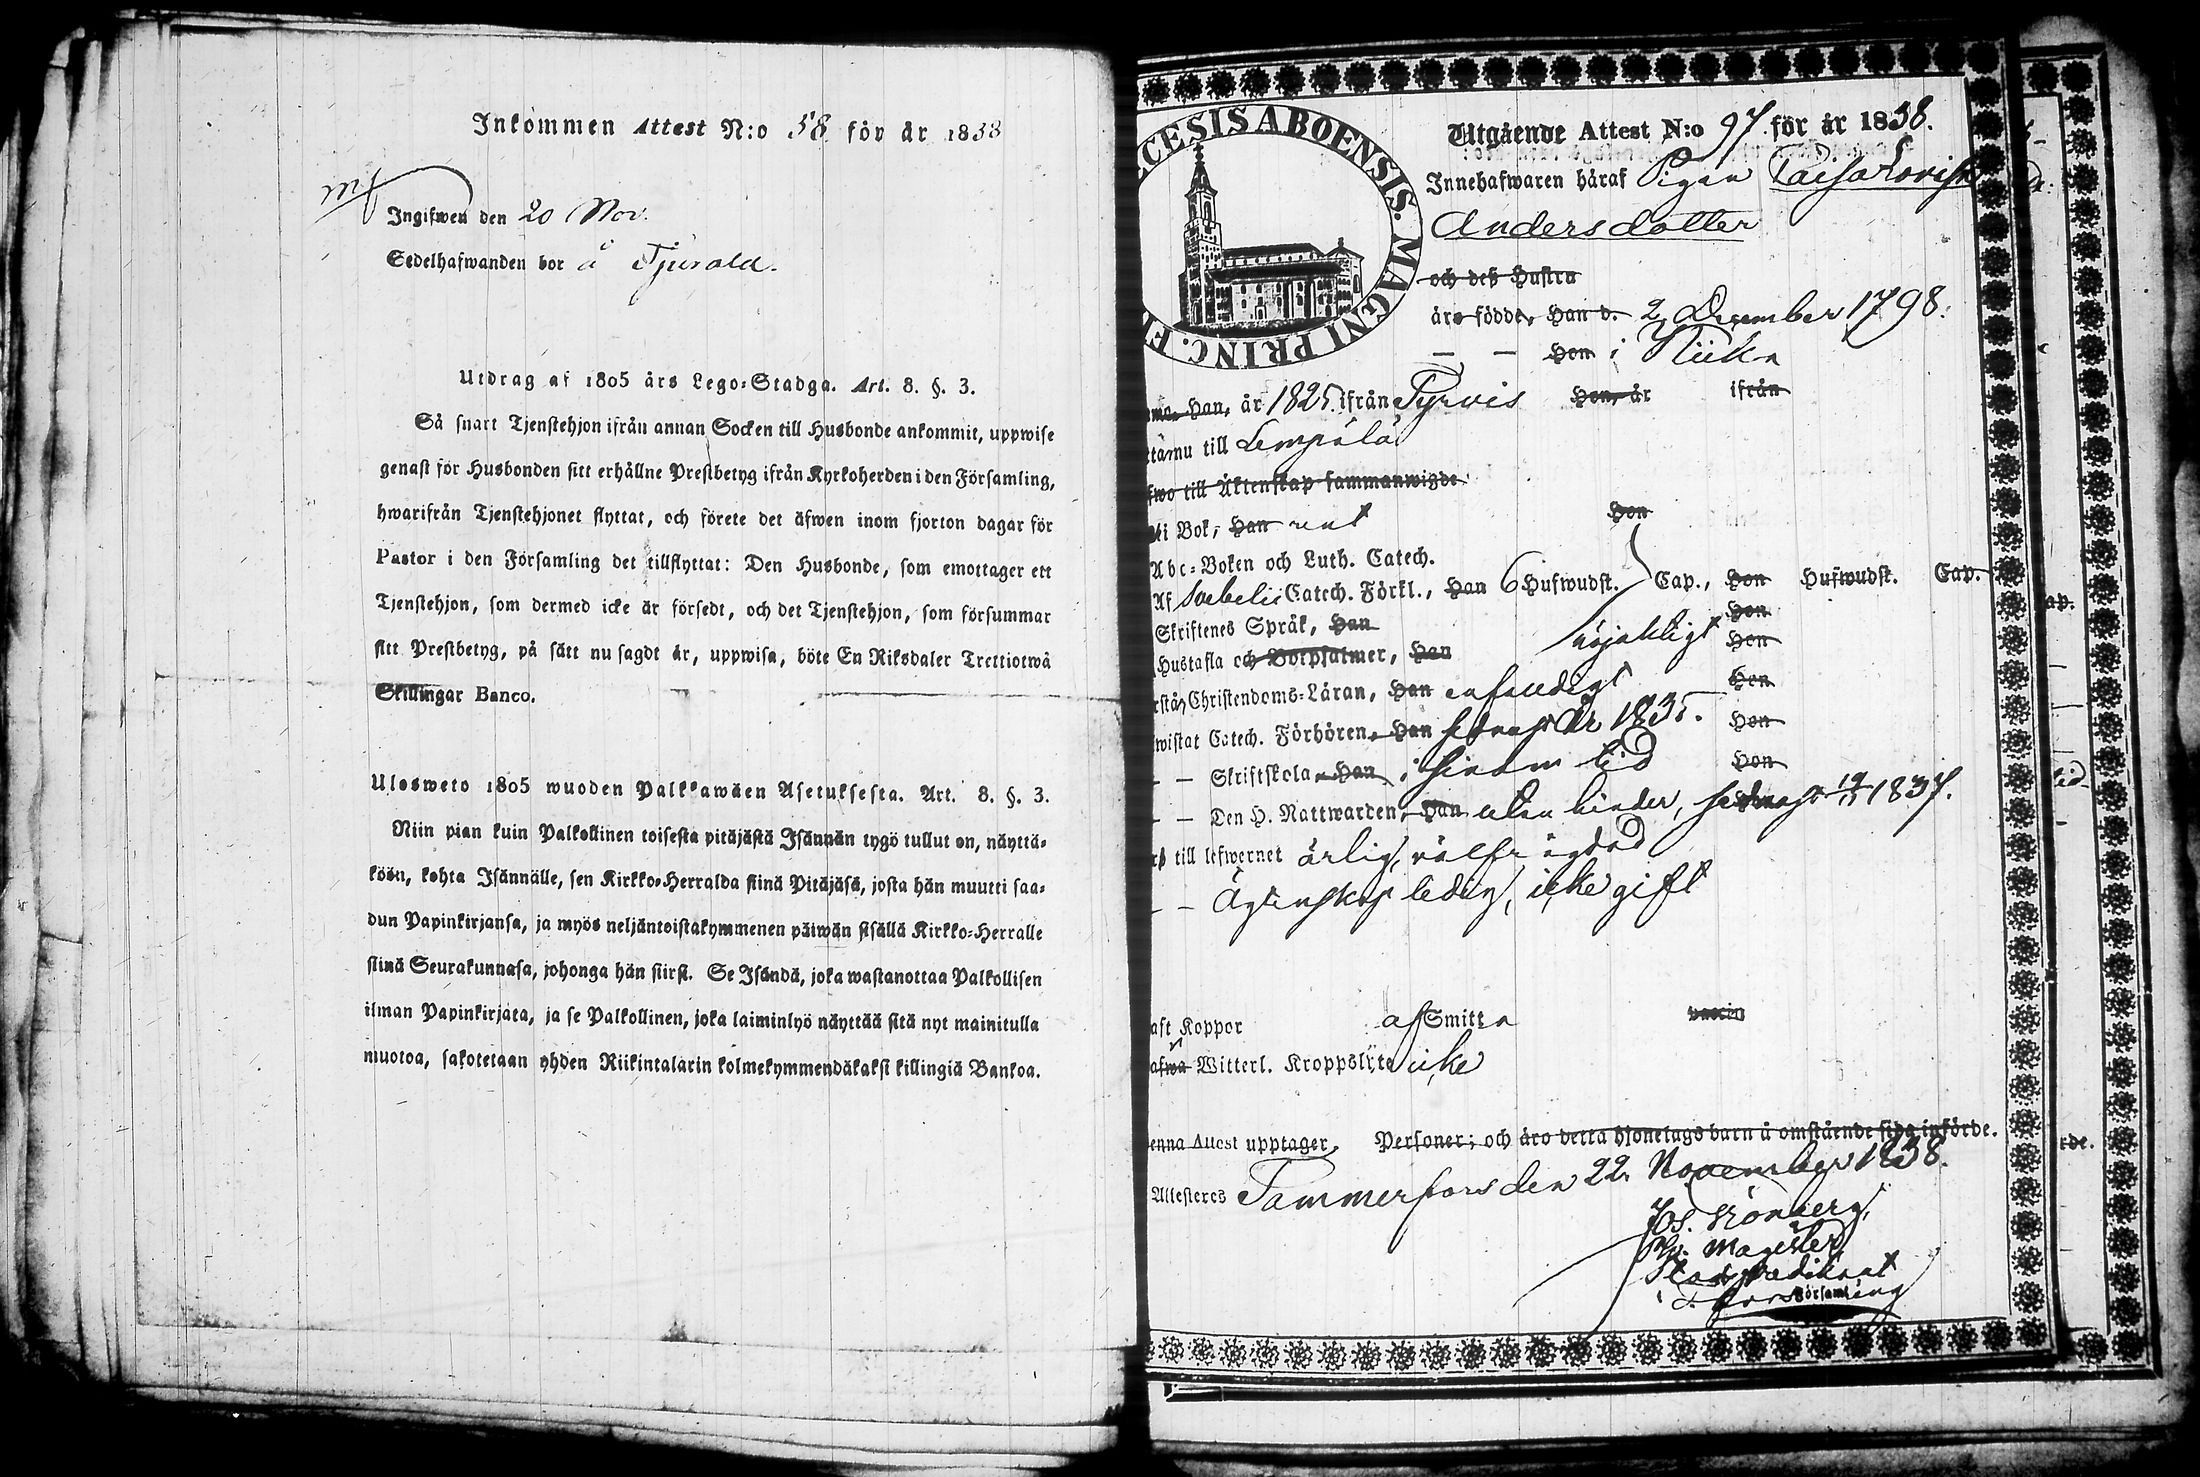 Inkommen Attest N:o 58 för år 1838
Ingifwen den 20 Nov.
Sedelhafwanden bor å
Utdrag af 1805 års Lego-Stadga. Art. 8. §. 3.
Så snart Tjenstehjon ifrån annan Socken till Husbonde ankommit, uppwise
genast för Husbonden sitt erhållne Prestbetyg ifrån Kyrkoherden i den Församling,
hwarifrån Tjenstehjonet flyttat, och förete det äfwen inom fjorton dagar för
Pastor i den Församling det tillflyttat: Den Husbonde, som emottager ett
Tjenstehjon, som dermed icke är försedt, och det Tjenstehjon, som försummar
sitt Prestbetyg, på sätt nu sagdt är, uppwisa, böte En Riksdaler Trettiotwå
Skillingar Banco.
Ulosweto 1805 wuoden Palkkawäen Asetuksesta. Art. 8. §. 3.
Niin pian kuin Palkollinen toisesta pitäjästä Isännän tygö tullut on, näyttä-
köön, kohta Isännälle, sen Kirkko-Herralda siinä Pitäjäsä, josta hän muutti saa-
dun Papinkirjansa, ja myös neljäntoistakymmenen päiwän sisällä Kirkko-Herralle
siinä Seurakunnasa, johonga hän siirst. Se Isändä, joka wastanottaa Palkollisen
ilman Papinkirjata, ja se Palkollinen, joka laiminlyö näyttää sitä nyt mainitulla
muotoa, sakotetaan yhden Riikintalarin kolmekymmendäkaksi killingiä Bankoa.
CESIS ABOENSIS. MAGNI PRINC. F
Utgående Attest N:o 97 för år 1838.
Innehafwaren häraf Pigan Caisa Lovisa
Andersdotter
och deß Hustru
äro födde, Han d. 2 December 1798.
— — Hon i
Han, år 1825 ifrån Tyrvis Hon, år ifrån
nu till Lempälä
fwo till Äktenskap sammanwigde
i Bok, Han rent Hon
Abc-Boken och Luth. Catech.
Af Svebelii Catech. Förkl., Han 6 Hufwudst. Cap., Hon Hufwudst. Cap.
Skriftenes Språk, Han Hon
Hustafla och Botpsalmer, Han nöjaktigt Hon
Christendoms-Läran, Han enfaldigt Hon
wistat Catech. Förhören, Han sednast år 1835. Hon
— — Skriftskola, Han i sinom tid Hon
— — Den H. Nattwarden, Han utan hinder, sednast 1837.
till lefwernet ärlig, välfrägdad
— — Ägtenskap ledig, icke gift
aft Koppor af Smitta vaccin
afwa Witterl. Kroppslyte icke
enna Attest upptager Personer; och äro detta hjonelags barn å omstående sida införde.
Attesteras Tammerfors den 22 November 1838.
Jos. Grönberg,
Ph. Magister
Stadspredikant
T:fors Församling